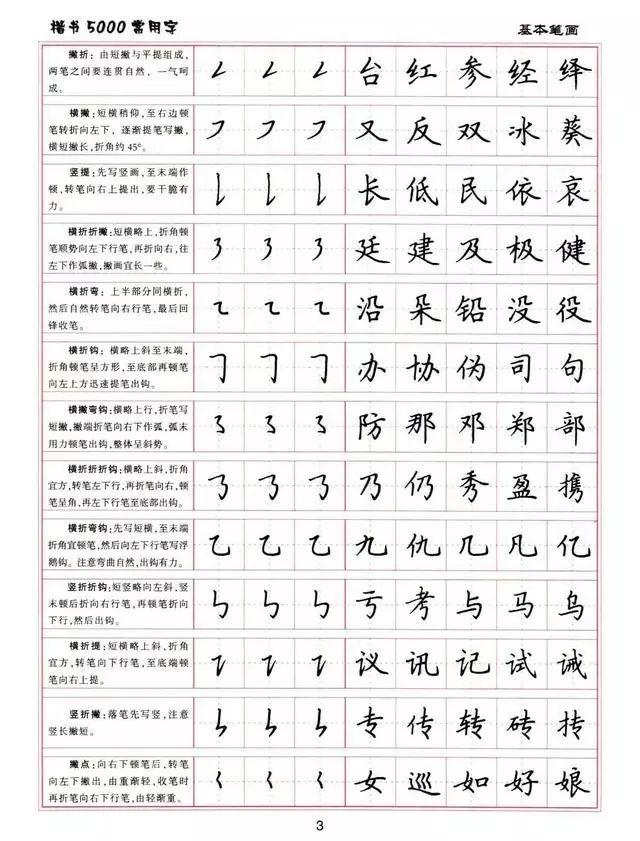 楷书5000常用字
基本笔画
撇折:由短撇与平提组成,
两笔之间要连贯自然,一气呵
成。
台 红 参 经 绎
横撇:短横稍仰,至右边顿
笔转折向左下,逐渐提笔写撇,
横短撇长,折角约45°。
又 反 双 冰 葵
竖提:先写竖画,至末端作
顿,转笔向右上提出,要干脆有
力。
长 低 民 依 哀
横折折撇:短横略上,折角顿
笔顺势向左下行笔,再折向右,往
左下作弧撇,撇画宜长一些。
廷 建 及 极 健
横折弯:上半部分同横折,
然后自然转笔向右行笔,最后回
锋收笔。
沿 朵 铅 没 役
横折钩:横略上斜至末端,
折角顿笔呈方形,至底部再顿笔
向左上方迅速提笔出钩。
办 协 伪 司 句
横撇弯钩:横略上行,折笔写
短撇,撇端折笔向右下作弧,弧末
用力顿笔出钩,整体呈斜势。
防 那 邓 郑 部
横折折折钩:横略上斜,折角
宜方,转笔左下行,再折笔向右,顿
笔呈角,再左下行笔至底部出钩。
乃 仍 秀 盈 携
横折弯钩:先写短横,至末端
折角宜顿笔,然后向左下行笔写浮
鹅钩。注意弯曲自然,出钩有力。
九 仇 几 凡 亿
竖折折钩:短竖略向左斜,竖
末顿后折向右行笔,再顿笔折向
下行,然后出钩。
亏 考 与 马 乌
横折提:短横略上斜,折角
宜方,转笔向下行笔,至底端顿
笔向右上提。
议 讯 记 试 诫
竖折撇:落笔先写竖,注意
竖长撇短。
专 传 转 砖 抟
撇点:向右下顿笔后,转笔
向左下撇出,由重渐轻,收笔时
再折笔向右下行笔,由轻渐重。
女 巡 如 好 娘
3